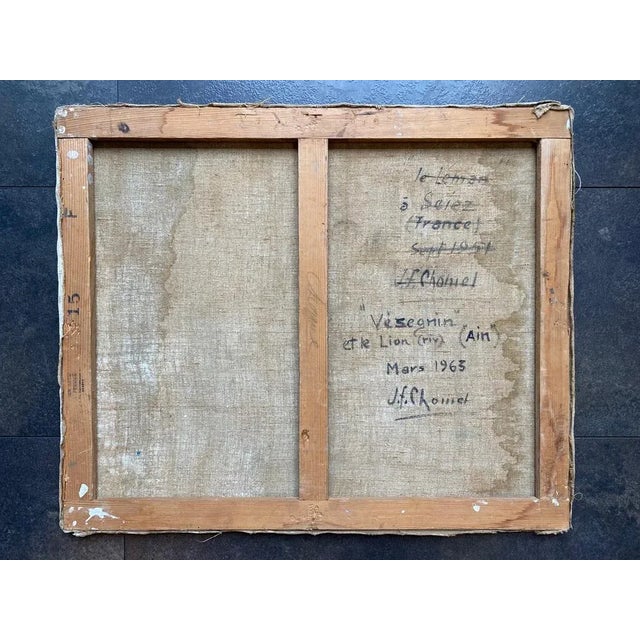 le Leman
à Sciez
(France)
Sept 1951
J.f. Chomel
"Vésegnin"
et le Lion (riv) (Ain)
Mars 1963
J.f. Chomel
15 F